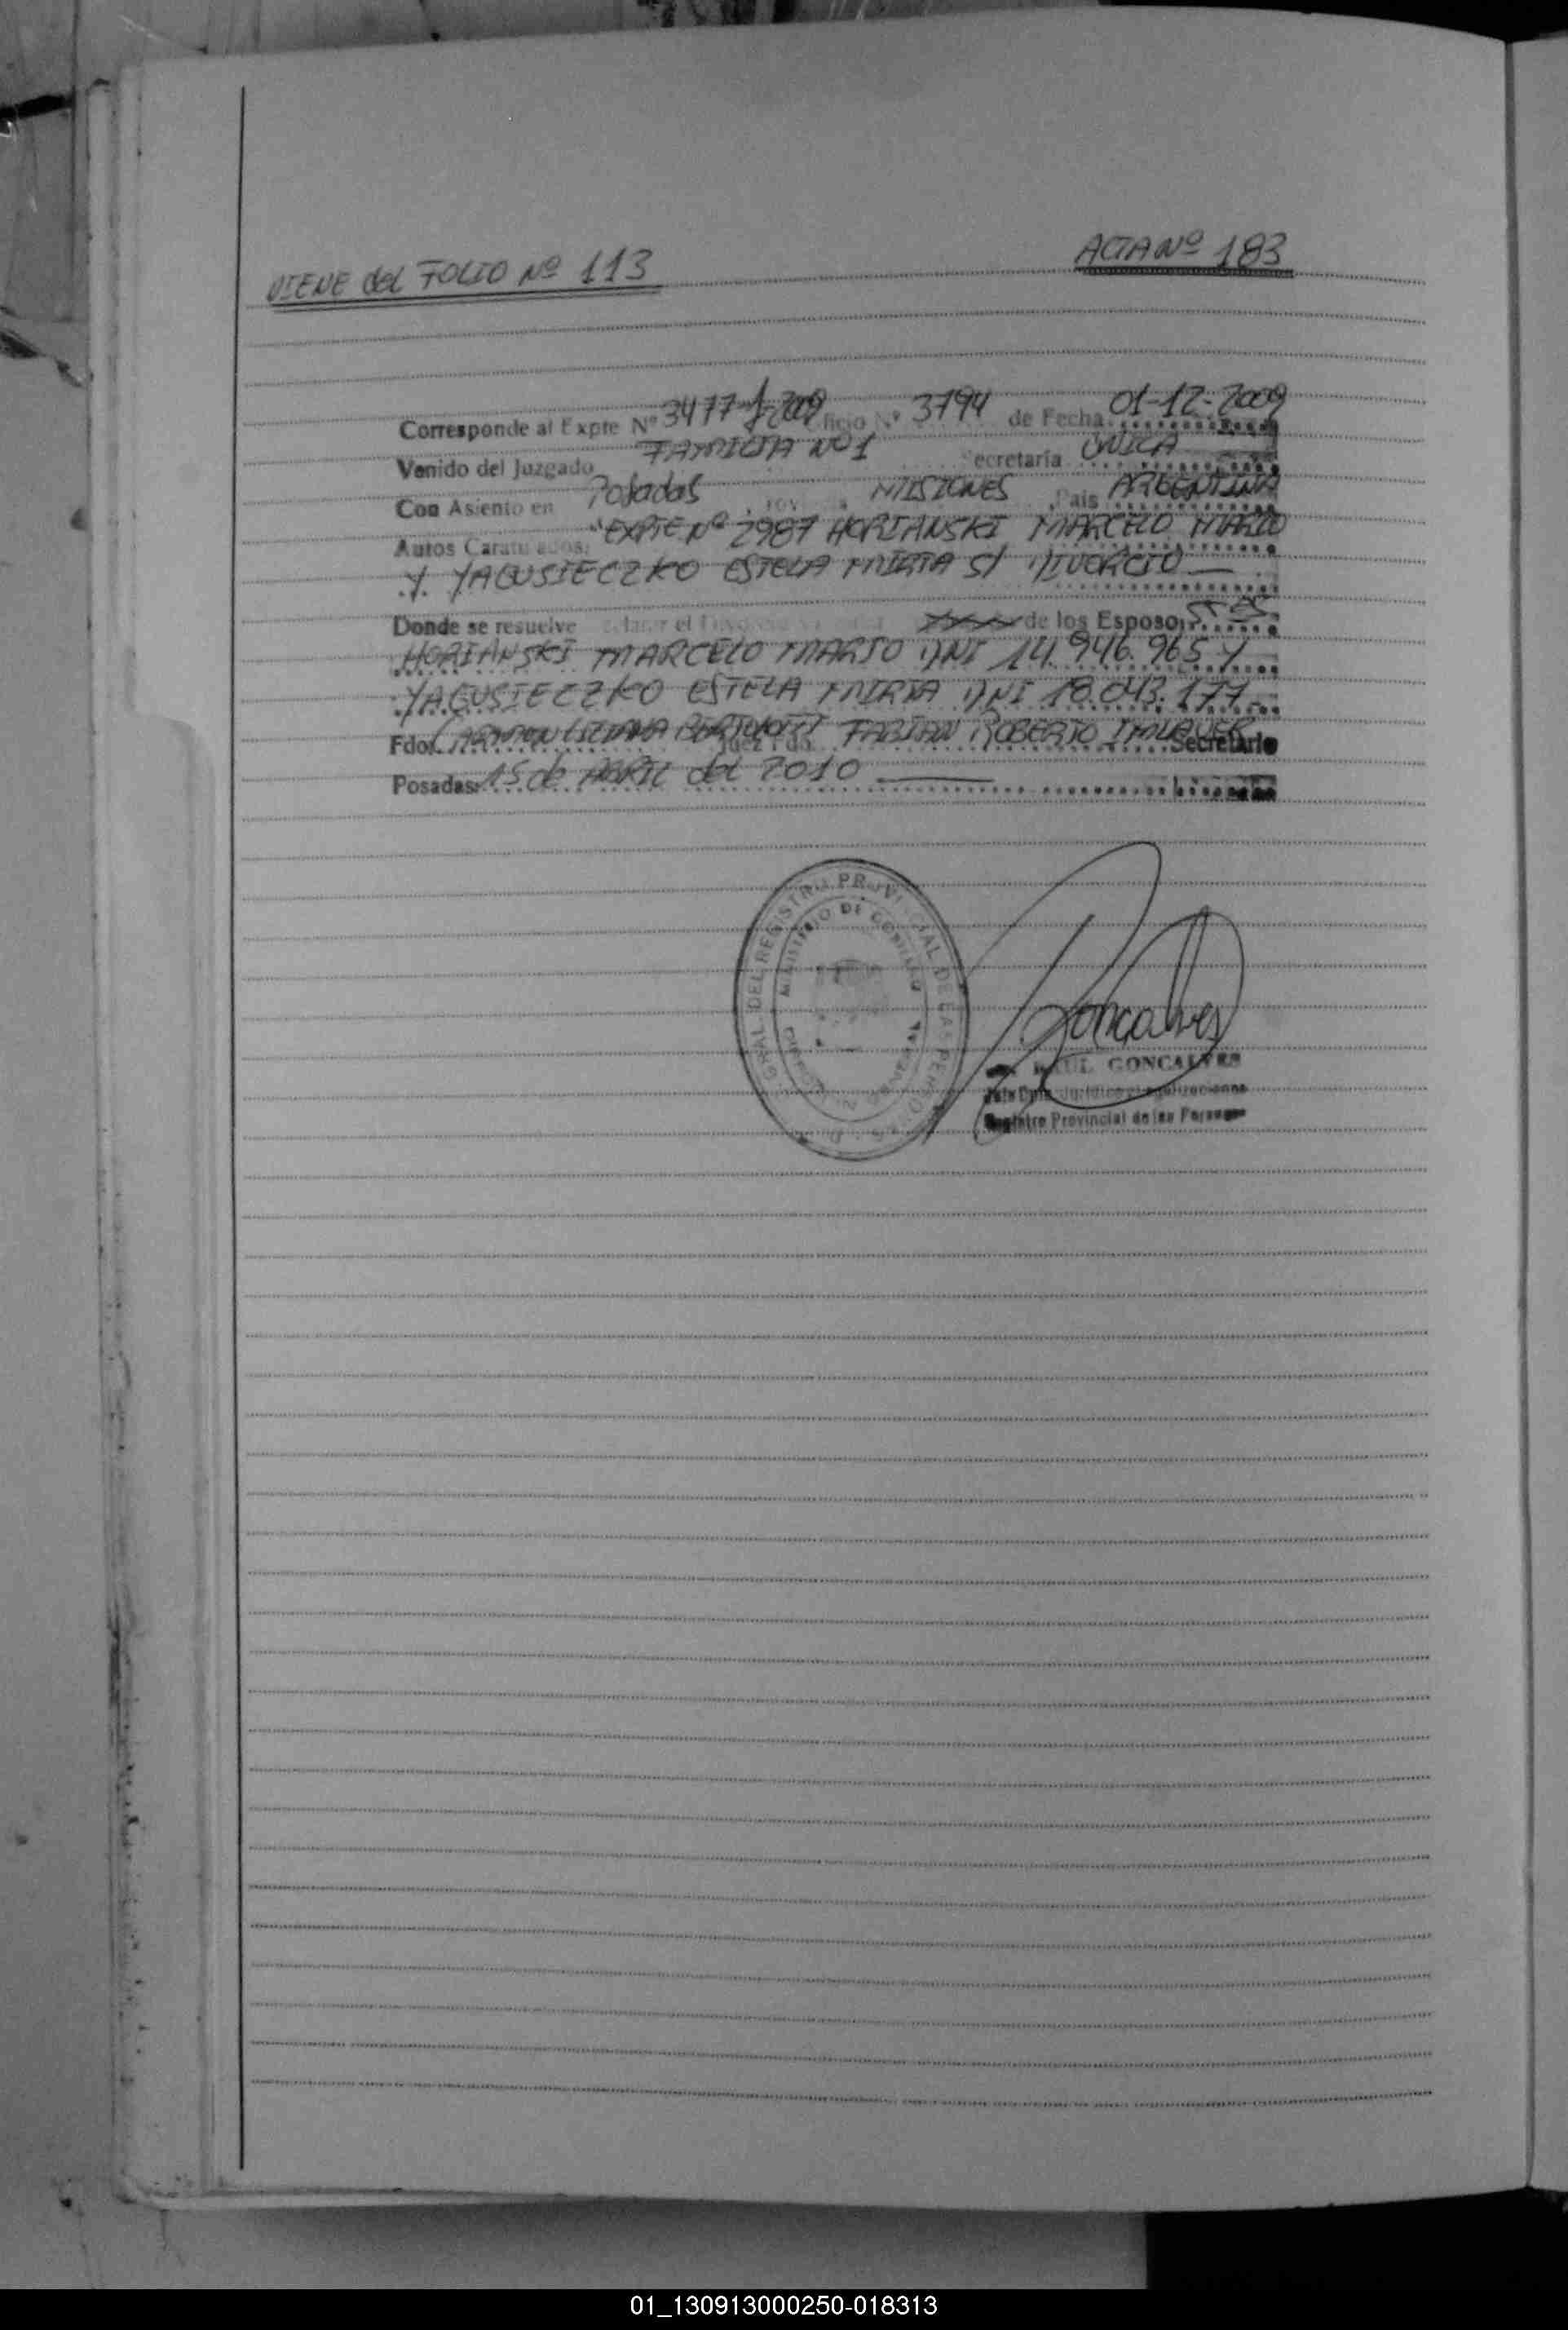 VIENE del FOLIO Nº 113
ACTA Nº 183
Corresponde al Expte Nº 3477-J-2009 Oficio Nº 3794 de Fecha 01-12-2009
Venido del Juzgado FAMILIA Nº 1 Secretaría ÚNICA
Con Asiento en Posadas MISIONES País ARGENTINA
Autos Caratulados: "EXPTE Nº 2987 HORIANSKI MARCELO MARIO
Y YAGUSIECZKO ESTELA MIRTA S/ DIVORCIO
Donde se resuelve el de los Esposos
HORIANSKI MARCELO MARIO DNI 14.946.965 Y
YAGUSIECZKO ESTELA MIRTA DNI 18.043.177
Fdo. CARMEN FABIAN ROBERTO Secretario
Posadas: 15 de ABRIL del 2010
GRAL. DEL REGISTRO PROVINCIAL DE LAS PERSONAS
MINISTERIO DE GOBIERNO
Goncalves
RAUL GONCALVES
Jefe Dpto. Jurídico
Registro Provincial de las Personas
01_130913000250-018313